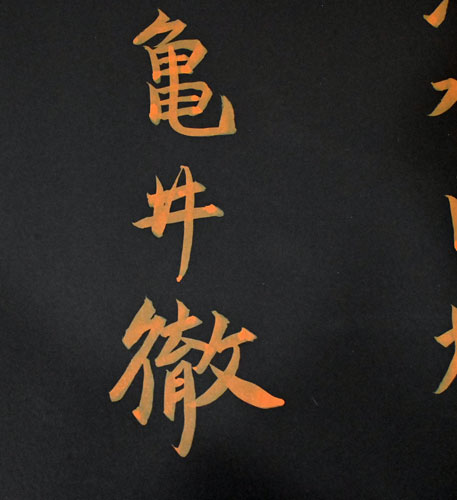 亀井徹